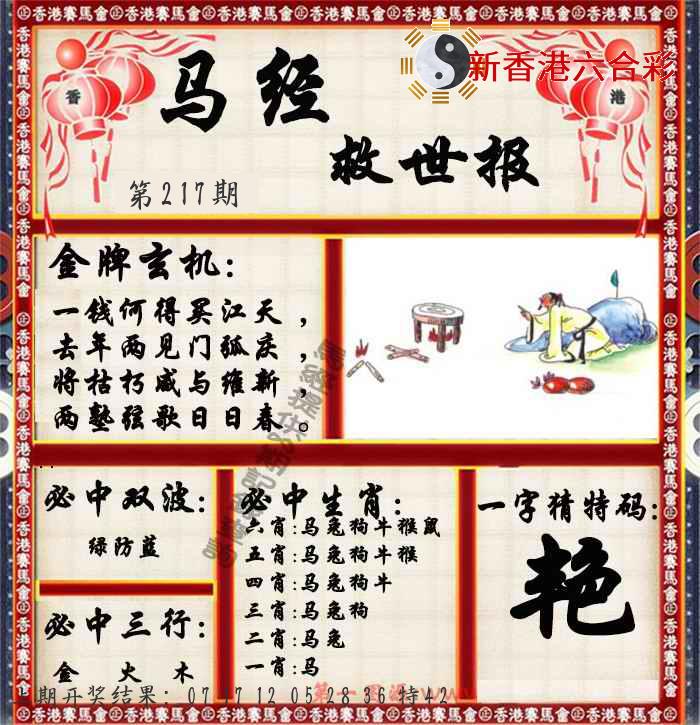 新香港六合彩
香
港
马经
救世报
第217期
金牌玄机:
一钱何得买江天，
去年两见门弧庆，
将枯朽咸与维新，
两塾弦歌日日春。
必中双波:
绿防蓝
必中三行:
金 火 木
必中生肖:
六肖:马兔狗牛猴鼠
五肖:马兔狗牛猴
四肖:马兔狗牛
三肖:马兔狗
二肖:马兔
一肖:马
一字猜特码:
艳
期开奖结果: 07 17 12 05 28 36 特42
香港賽馬會